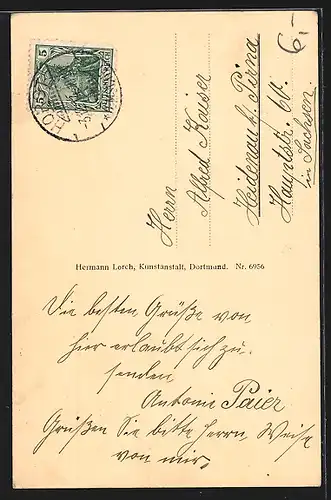 5
6,-
Herrn
Alfred Kaiser
Heidenau b/ Pirna
Hauptstr. 6
in Sachsen.
Hermann Lorch, Kunstanstalt, Dortmund. Nr. 6956
Die besten Grüße von
hier erlaubt sich zu
senden
Antonie Paier
Grüßen Sie bitte Herrn Weise
von mir.